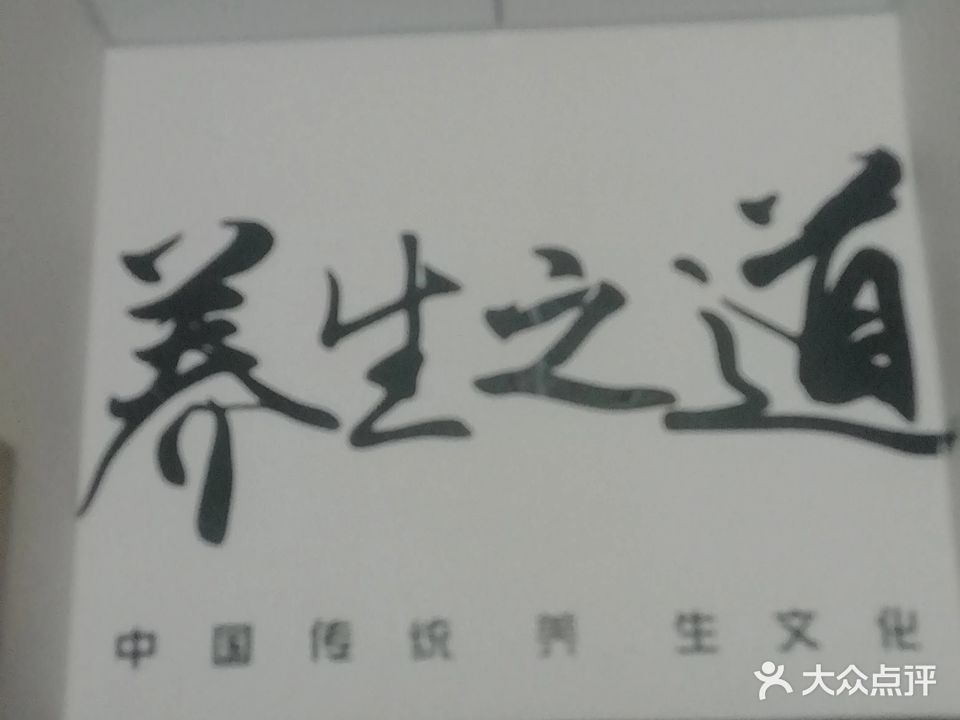 养生之道
中国传统养生文化
大众点评